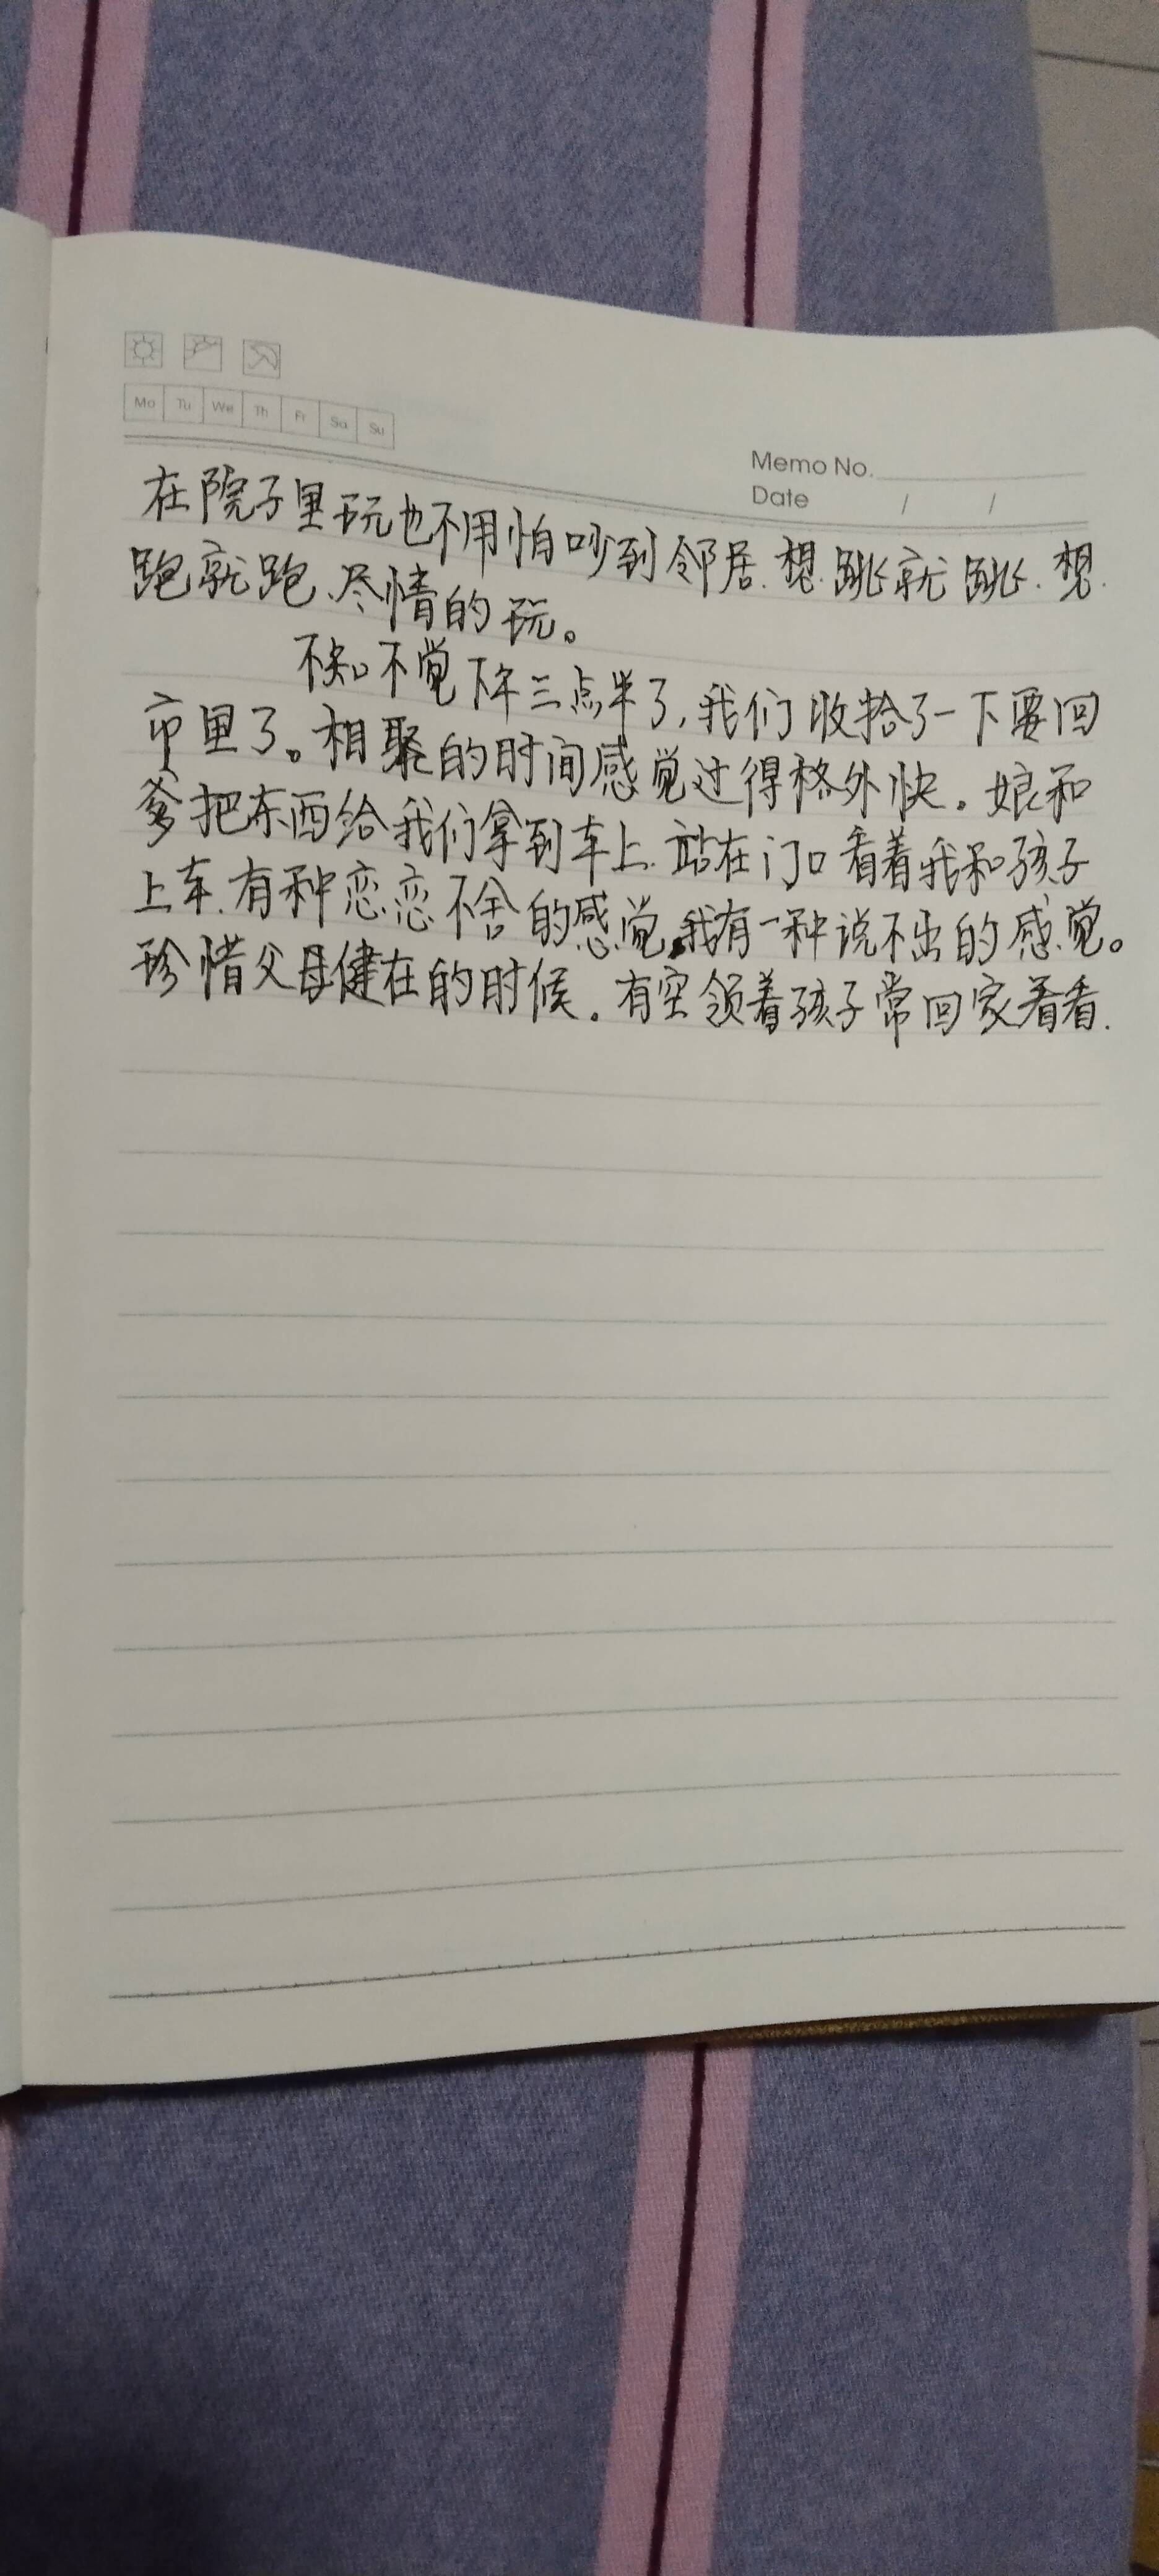 Mo Tu We Th Fr Sa Su
Memo No.
Date / /
在院子里玩也不用怕吵到邻居.想跳就跳.想
跑就跑、尽情的玩。
不知不觉下午三点半了,我们收拾了一下要回
市里了。相聚的时间感觉过得格外快。娘和
爹把东西给我们拿到车上.站在门口看着我和孩子
上车.有种恋恋不舍的感觉,我有一种说不出的感觉。
珍惜父母健在的时候。有空领着孩子常回家看看.